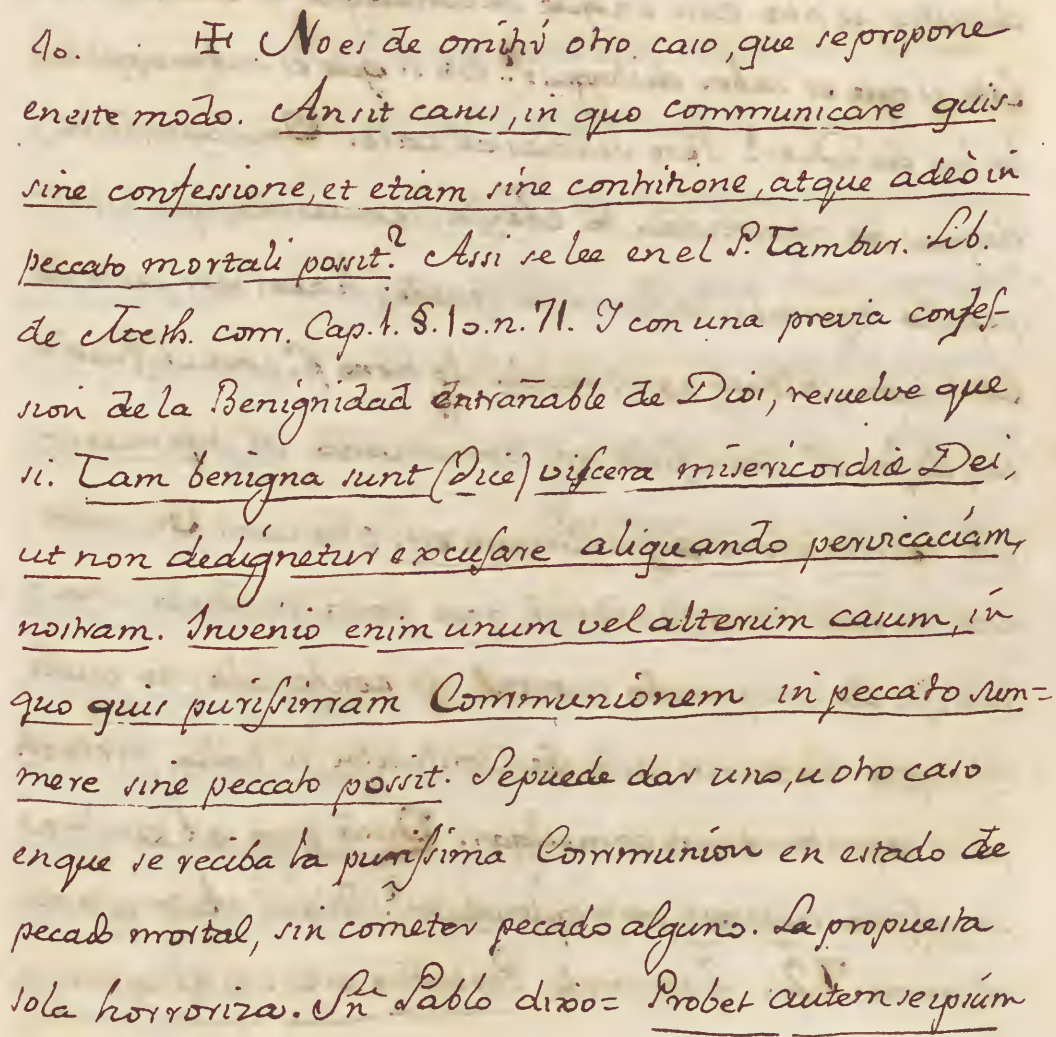 40. ✠ No es de omitir otro caso, que se propone
en este modo. An sit casus, in quo communicare quis
sine confessione, et etiam sine contritione, atque adeò in
peccato mortali possit? Assi se lee en el P. Tambur. Lib.
de Meth. com. Cap. 1. §. 10. n. 71. I con una previa confes-
sion de la Benignidad entrañable de Dios, resuelve que
si. Tam benigna sunt (Dice) viscera misericordiæ Dei,
ut non dedignetur excusare aliquando pervicaciam,
nostram. Invenio enim unum vel alterum casum, in
quo quis purissimam Communionem in peccato sum=
mere sine peccato possit. Se puede dar uno, u otro caso
en que se reciba la purissima Communion en estado de
pecado mortal, sin cometer pecado alguno. La propuesta
sola horroriza. Sn Pablo dixo= Probet autem seipsum